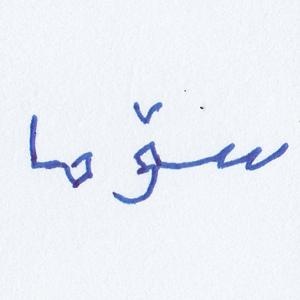 سۆما